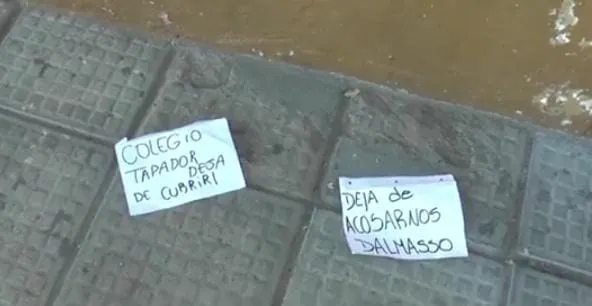 COLEGIO
TAPADOR DEJA
DE CUBRIR!
DEJA de
ACOSARNOS
DALMASSO